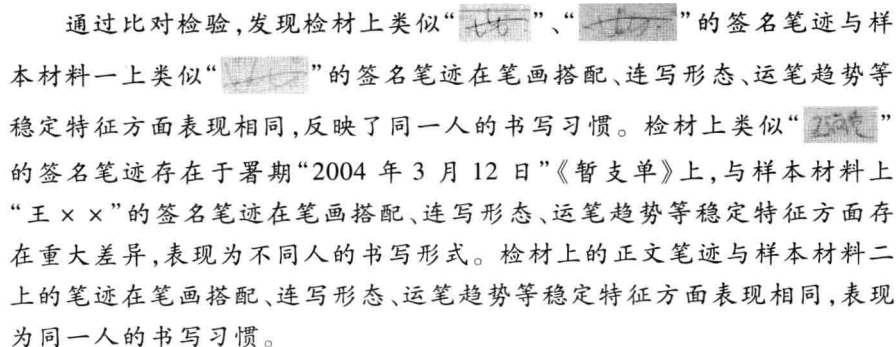 通过比对检验,发现检材上类似“ ”、“ ”的签名笔迹与样
本材料一上类似“ ”的签名笔迹在笔画搭配、连写形态、运笔趋势等
稳定特征方面表现相同,反映了同一人的书写习惯。检材上类似“ ”
的签名笔迹存在于署期“2004 年 3 月 12 日”《暂支单》上,与样本材料上
“王××”的签名笔迹在笔画搭配、连写形态、运笔趋势等稳定特征方面存
在重大差异,表现为不同人的书写形式。检材上的正文笔迹与样本材料二
上的笔迹在笔画搭配、连写形态、运笔趋势等稳定特征方面表现相同,表现
为同一人的书写习惯。